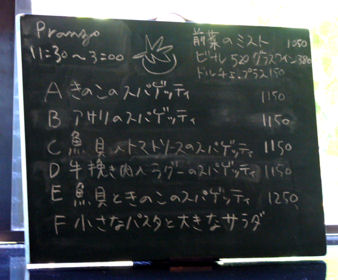 Pranzo
11:30〜3:00
前菜のミスト 1050
ビール520 グラスワイン380
ドルチェ プラス150
A きのこのスパゲッティ 1150
B アサリのスパゲッティ 1150
C 魚貝のトマトソースのスパゲッティ 1150
D 牛挽き肉のラグーのスパゲッティ 1150
E 魚貝ときのこのスパゲッティ 1250
F 小さなパスタと大きなサラダ